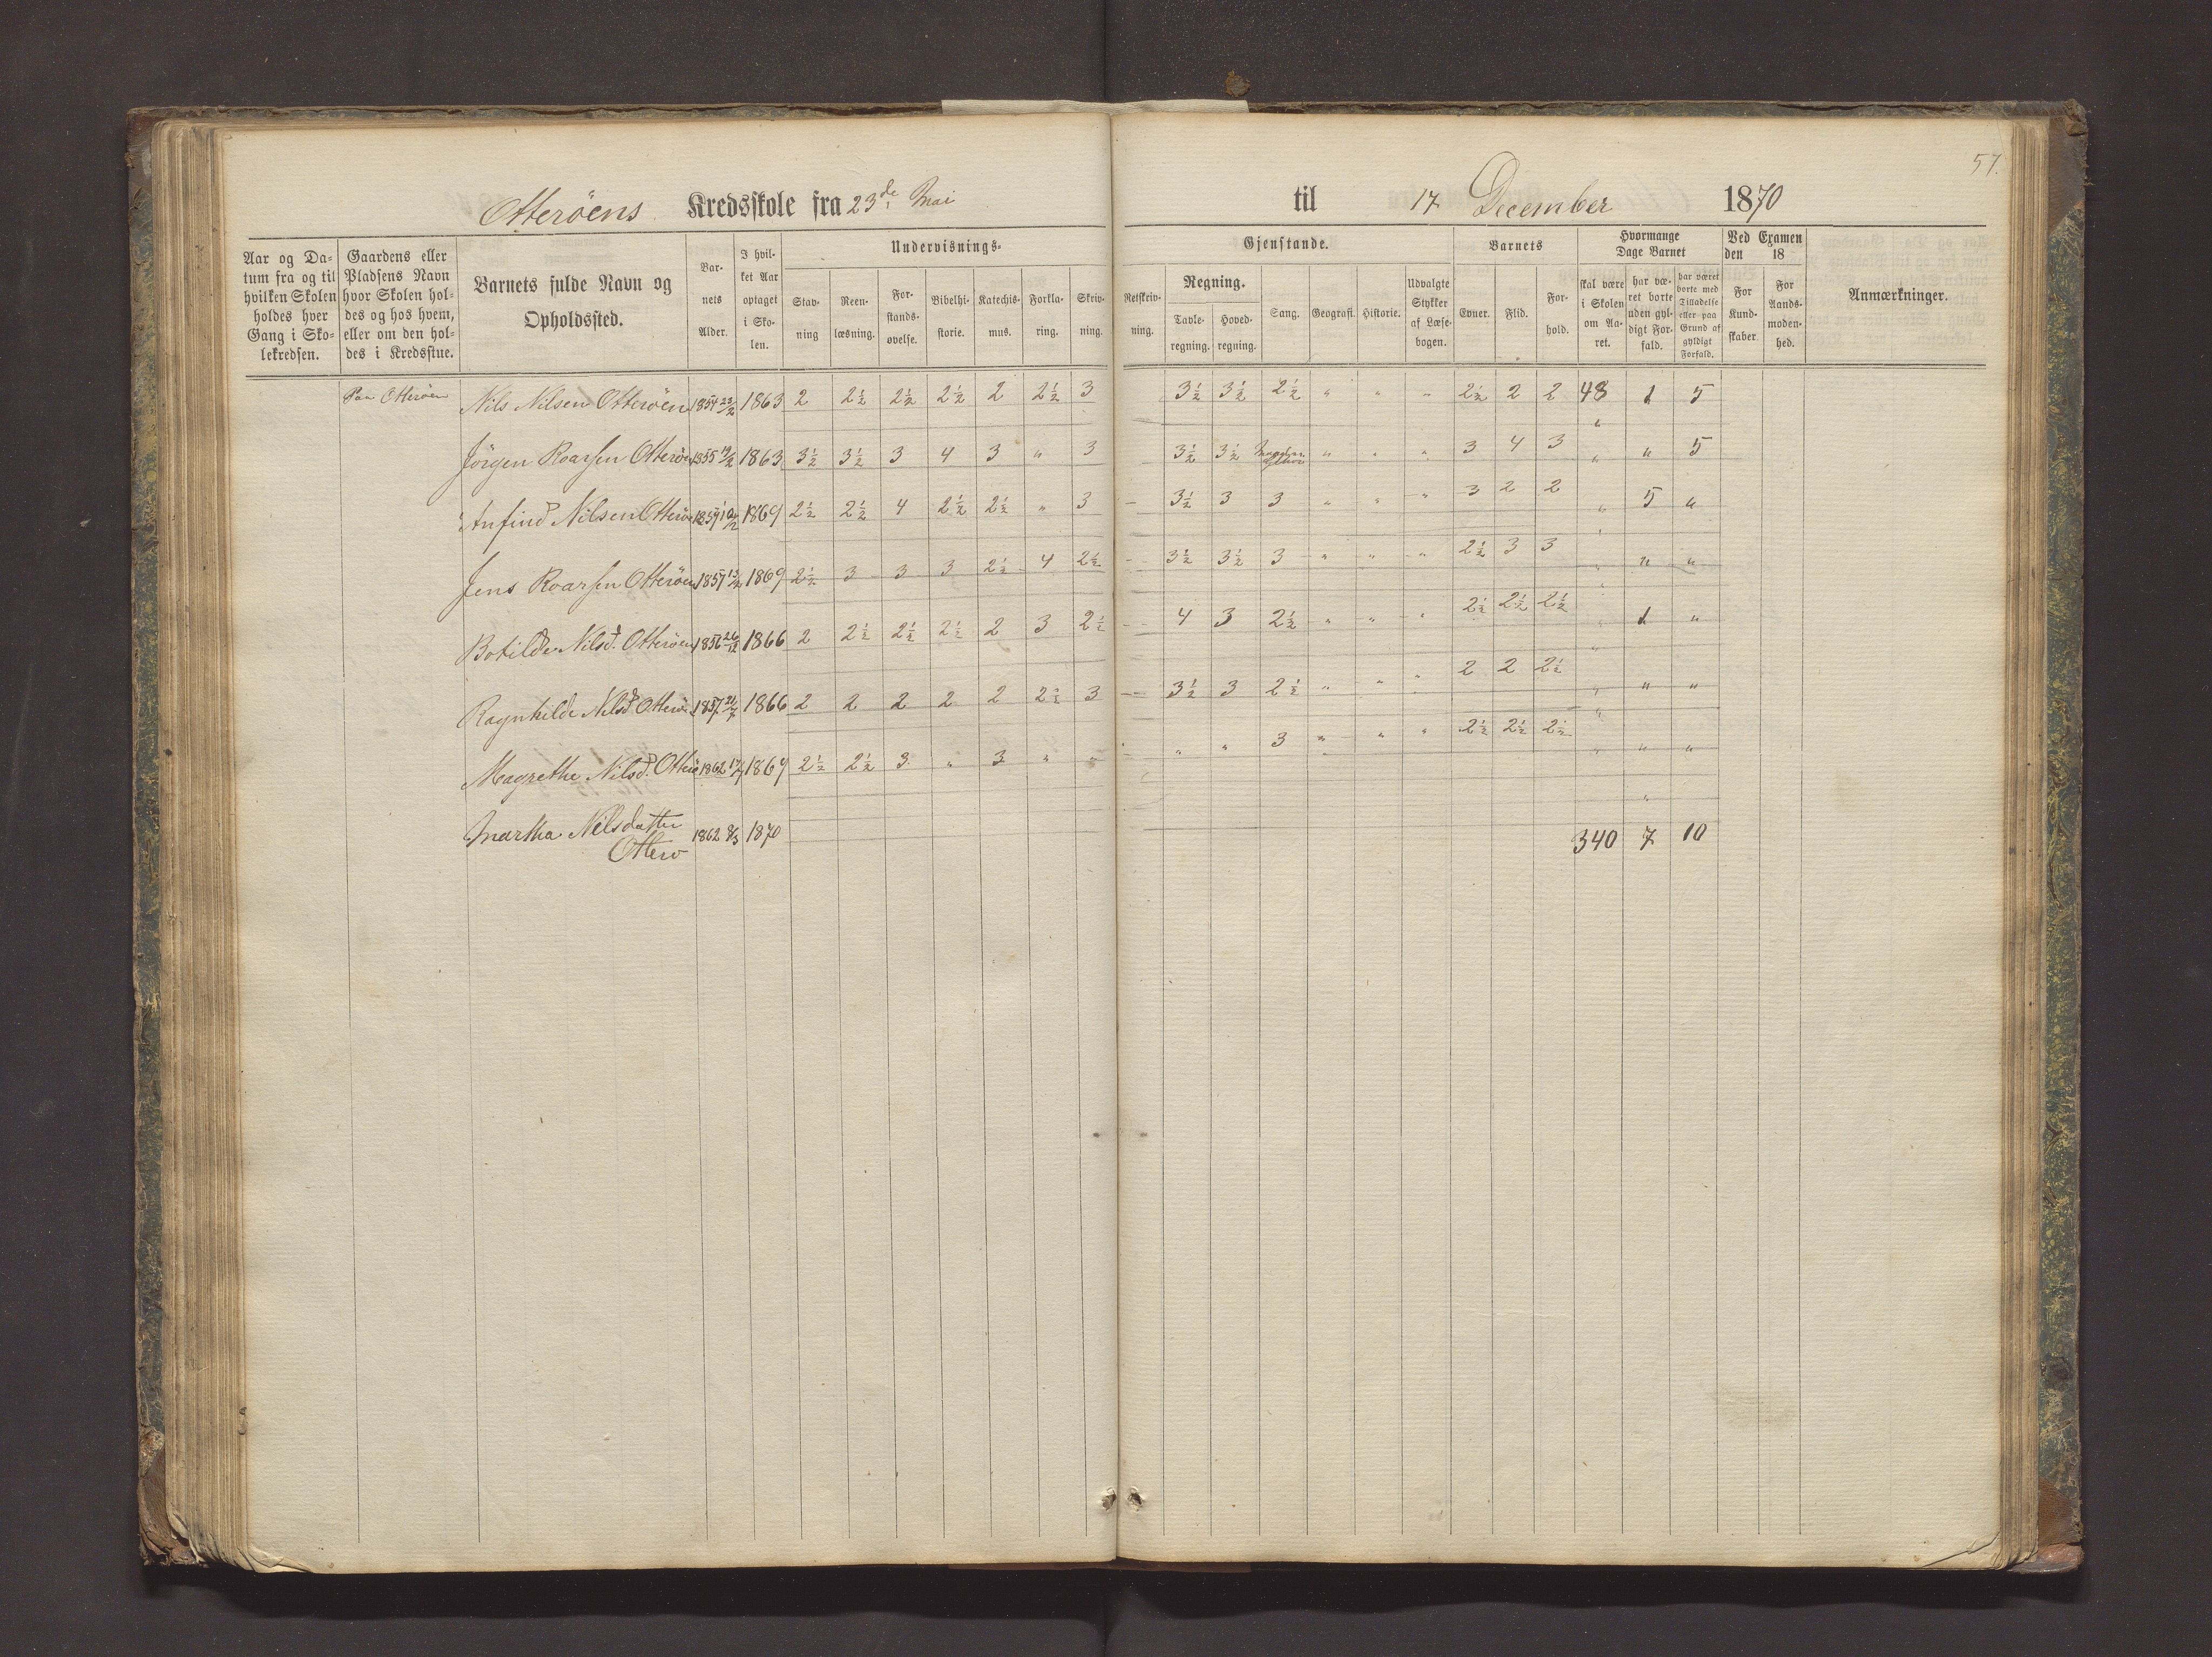 57.
Otterøens Kredsskole fra 23de Mai til 17 December 1870
Aar og Datum fra og til hvilken Skolen holdes hver Gang i Skolekredsen.
Gaardens eller Pladsens Navn hvor Skolen holdes og hos hvem, eller om den holdes i Kredsstue.
Barnets fulde Navn og Opholdssted.
Barnets Alder.
I hvilket Aar optaget i Skolen.
Undervisnings-
Stavning
Reenlæsning.
Forstandsøvelse.
Bibelhistorie.
Katechismus.
Forklaring.
Skrivning.
Gjenstande.
Retskrivning.
Regning.
Tavleregning.
Hovedregning.
Sang.
Geografi.
Historie.
Udvalgte Stykker af Læsebogen.
Barnets
Evner.
Flid.
Forhold.
Hvormange Dage Barnet
skal være i Skolen om Aaret.
har været borte uden gyldigt Forfald.
har været borte med Tilladelse eller paa Grund af gyldigt Forfald.
Ved Examen den 18
For Kundskaber
For Aandsmodenhed.
Anmærkninger.
Paa Otterøen Nils Nilsen Otterøen 1854 23/2 1863 2 2½ 2½ 2½ 2 2½ 3 3½ 3½ 2½ " " " 2½ 2 2 48 1 5
Jörgen Roarsen Otterøen 1855 19/2 1863 3½ 3½ 3 4 3 " 3 3½ 3½ " " " 3 4 3 " " 5
Anfind Nilsen Otterøen 1859 10/2 1869 2½ 2½ 4 2½ 2½ " 3 – 3½ 3 3 " " " 3 2 2 " 5 "
Jens Roarsen Otterøen 1857 1869 2½ 3 3 3 2½ 4 2½ – 3½ 3½ 3 " " " 2½ 3 3 " " "
Botilde Nilsd. Otterøen 1856 26/12 1866 2 2½ 2½ 2½ 2 3 2½ – 4 3 2½ " " " 2½ 2½ 2½ " 1 "
Ragnhilde Nilsd Otterø 1857 21/7 1866 2 2 2 2 2 2½ 3 – 3½ 3 2½ " " " 2 2 2½ " " "
Magrethe Nilsd. Otterø 1862 1869 2½ 2½ 3 " 3 " " – " " 3 " " " 2½ 2½ 2½ " " "
Martha Nilsdatter 1862 8/3 1870
Otterø
340 7 10